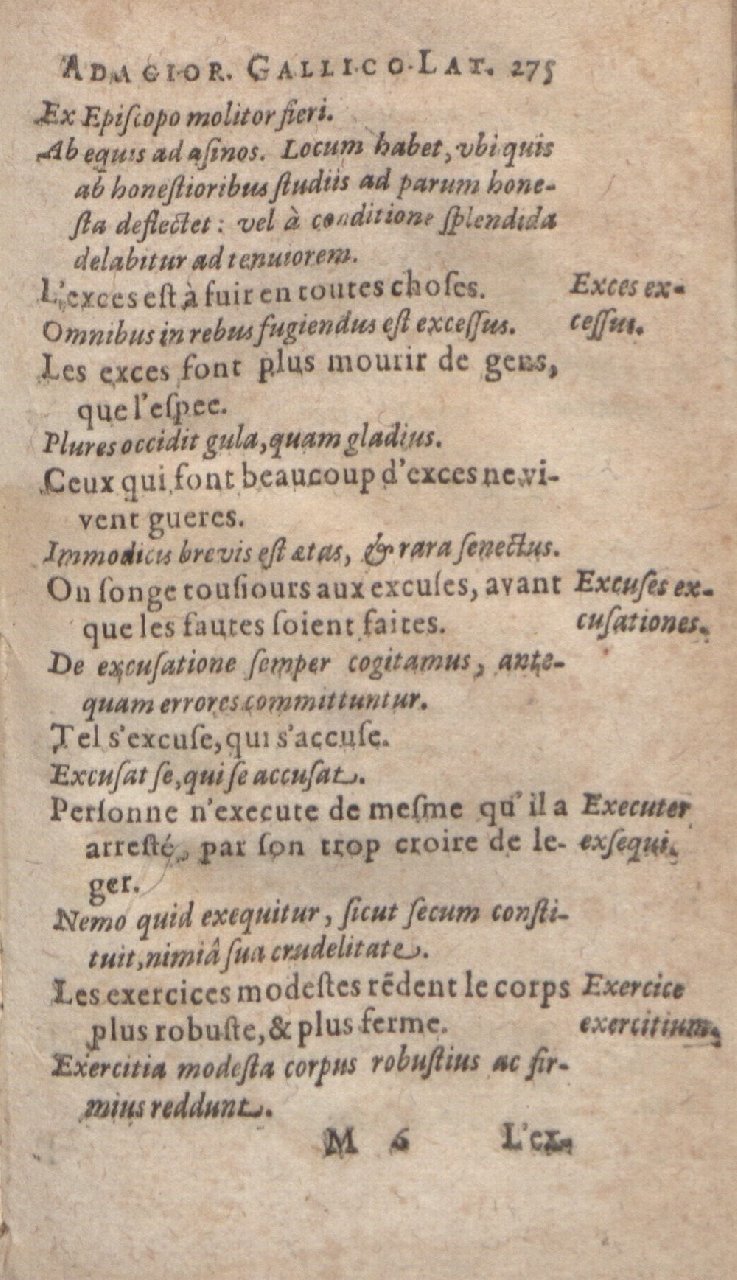 ADAGIOR. GALLICO-LAT. 275
Ex Epiſcopo molitor fieri.
Ab equis ad aſinos. Locum habet, vbi quis
ab honeſtioribus ſtudiis ad parum hone-
ſta deflectet: vel à conditione ſplendida
delabitur ad tenuiorem.
L'exces est à fuir en toutes choſes.
Exces ex-
Omnibus in rebus fugiendus eſt exceſſus.
ceſſus.
Les exces font plus mourir de gens,
que l'eſpee.
Plures occidit gula, quam gladius.
Ceux qui font beaucoup d'exces ne vi-
vent gueres.
Immodicis brevis eſt ætas, & rara ſenectus.
On ſonge touſiours aux excuſes, avant
Excuſes ex-
que les fautes ſoient faites.
cuſationes.
De excuſatione ſemper cogitamus, ante-
quam errores committuntur.
Tel s'excuſe, qui s'accuſe.
Excuſat ſe, qui ſe accuſat.
Perſonne n'execute de meſme qu'il a
Executer
arreſté, par ſon trop croire de le-
exſequi.
ger.
Nemo quid exequitur, ſicut ſecum conſti-
tuit, nimiâ ſua crudelitate.
Les exercices modeſtes rẽdent le corps
Exercice
plus robuſte, & plus ferme.
exercitium.
Exercitia modeſta corpus robuſtius ac fir-
mius reddunt.
M 6 L'ex-